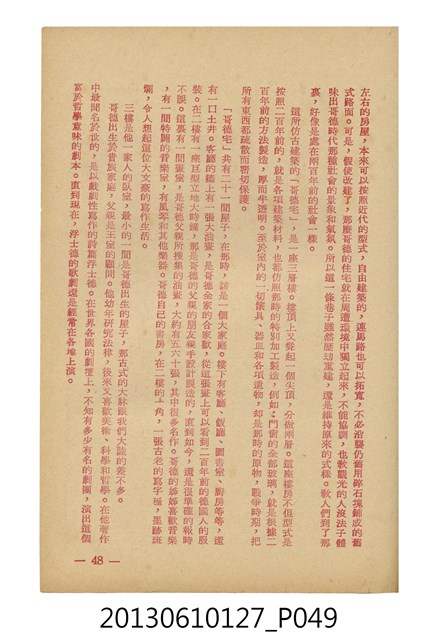 左右的房屋，本來可以按照近代的型式，自由建築的，連馬路也可以拓寬，不必沿襲仍舊用碎石塊鋪成的舊
式路面。可是，假使改建了，那麼哥德的住宅就在周遭環境中獨立起來，不能協調，也教觀光的人沒法子體
味出哥德時代那種社會的景象和氣氛。所以這一條巷子雖然歷劫重建，還是維持原來的式樣。教人們到了那
裏，好像是處在兩百年前的社會一樣。
這所仿古建築的「哥德宅」，是一座三層樓。樓頂上又聳起一個尖頂，分做兩層。這座樓房不但型式是
按照二百年前的，就是各項建築材料，也都仿照那時的特別加工製造，例如：門窗的全部玻璃，就是根據二
百年前的方法製造，明而半透明。至於室內的一切傢具、器皿和各項遺物，却是那時的原物，戰爭時期，把
所有東西都疏散而密切保護。
「哥德宅」共有二十一間屋子，在那時，該是一個大家庭。樓下有客廳、飯廳、圖書室、廚房等等，還
有一口土井。客廳的牆上有一張大油畫，是哥德全家的合家歡，從這張畫上可以看到二百年前的德國人的服
裝。在二樓有一座直是立地大時鐘，那是哥德的父親的朋友親手設計製造的，直到如今，還是很準確的報時
不誤。這裏有一間畫室，是哥德父親所搜集的油畫，大約有五六十張，其中很多名作。哥德的姊姊喜歡音樂
，有一間特闢的音樂室，有風琴和其他樂器。哥德自己的書房，在二樓的一角，一張古老的寫字檯，墨跡斑
斕，令人想起這位大文豪的寫作生活。
三樓是他一家人的臥室，最小的一間是哥德出生的屋子，那古式的大牀跟我們大陸的差不多。
哥德出生於貴族家庭，父親是王室的顧問。他幼年研究法律，後來又喜歡美術、科學和哲學。在他著作
中最聞名於世的，是以戲劇性寫作的詩篇浮士德。在世界各國的劇壇上，不知有多少有名的劇團，演出這個
富於哲學意味的劇本。直到現在，浮士德的歌劇還是經常在各地上演。
— 48 —
20130610127_P049